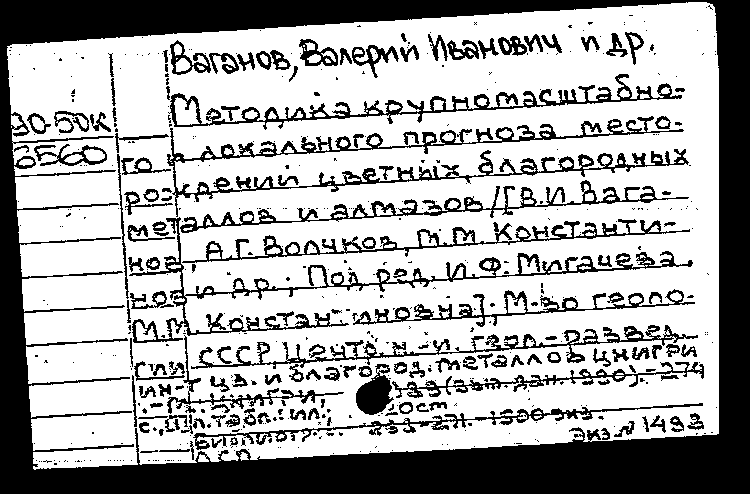 Ваганов, Валерий Иванович и др.
Методика крупномасштабно-
30-50К
3560 го и локального прогноза место-
рождений цветных, благородных
металлов и алмазов / [В.И. Вага-
нов, А.Г. Волчков, М.М. Константи-
нов и др.; Под ред. И.Ф. Мигачева,
М.М. Константиновна]; М-во геоло-
гии СССР, Центр. н.-и. геол.-развед.
ин-т цв. и благород. металлов ЦНИГРИ
.-М.: ЦНИГРИ, (вып. дан. 1990).-274
с., табл. ил.;
Библиогр.: 1500 экз.
Экз. N 1493